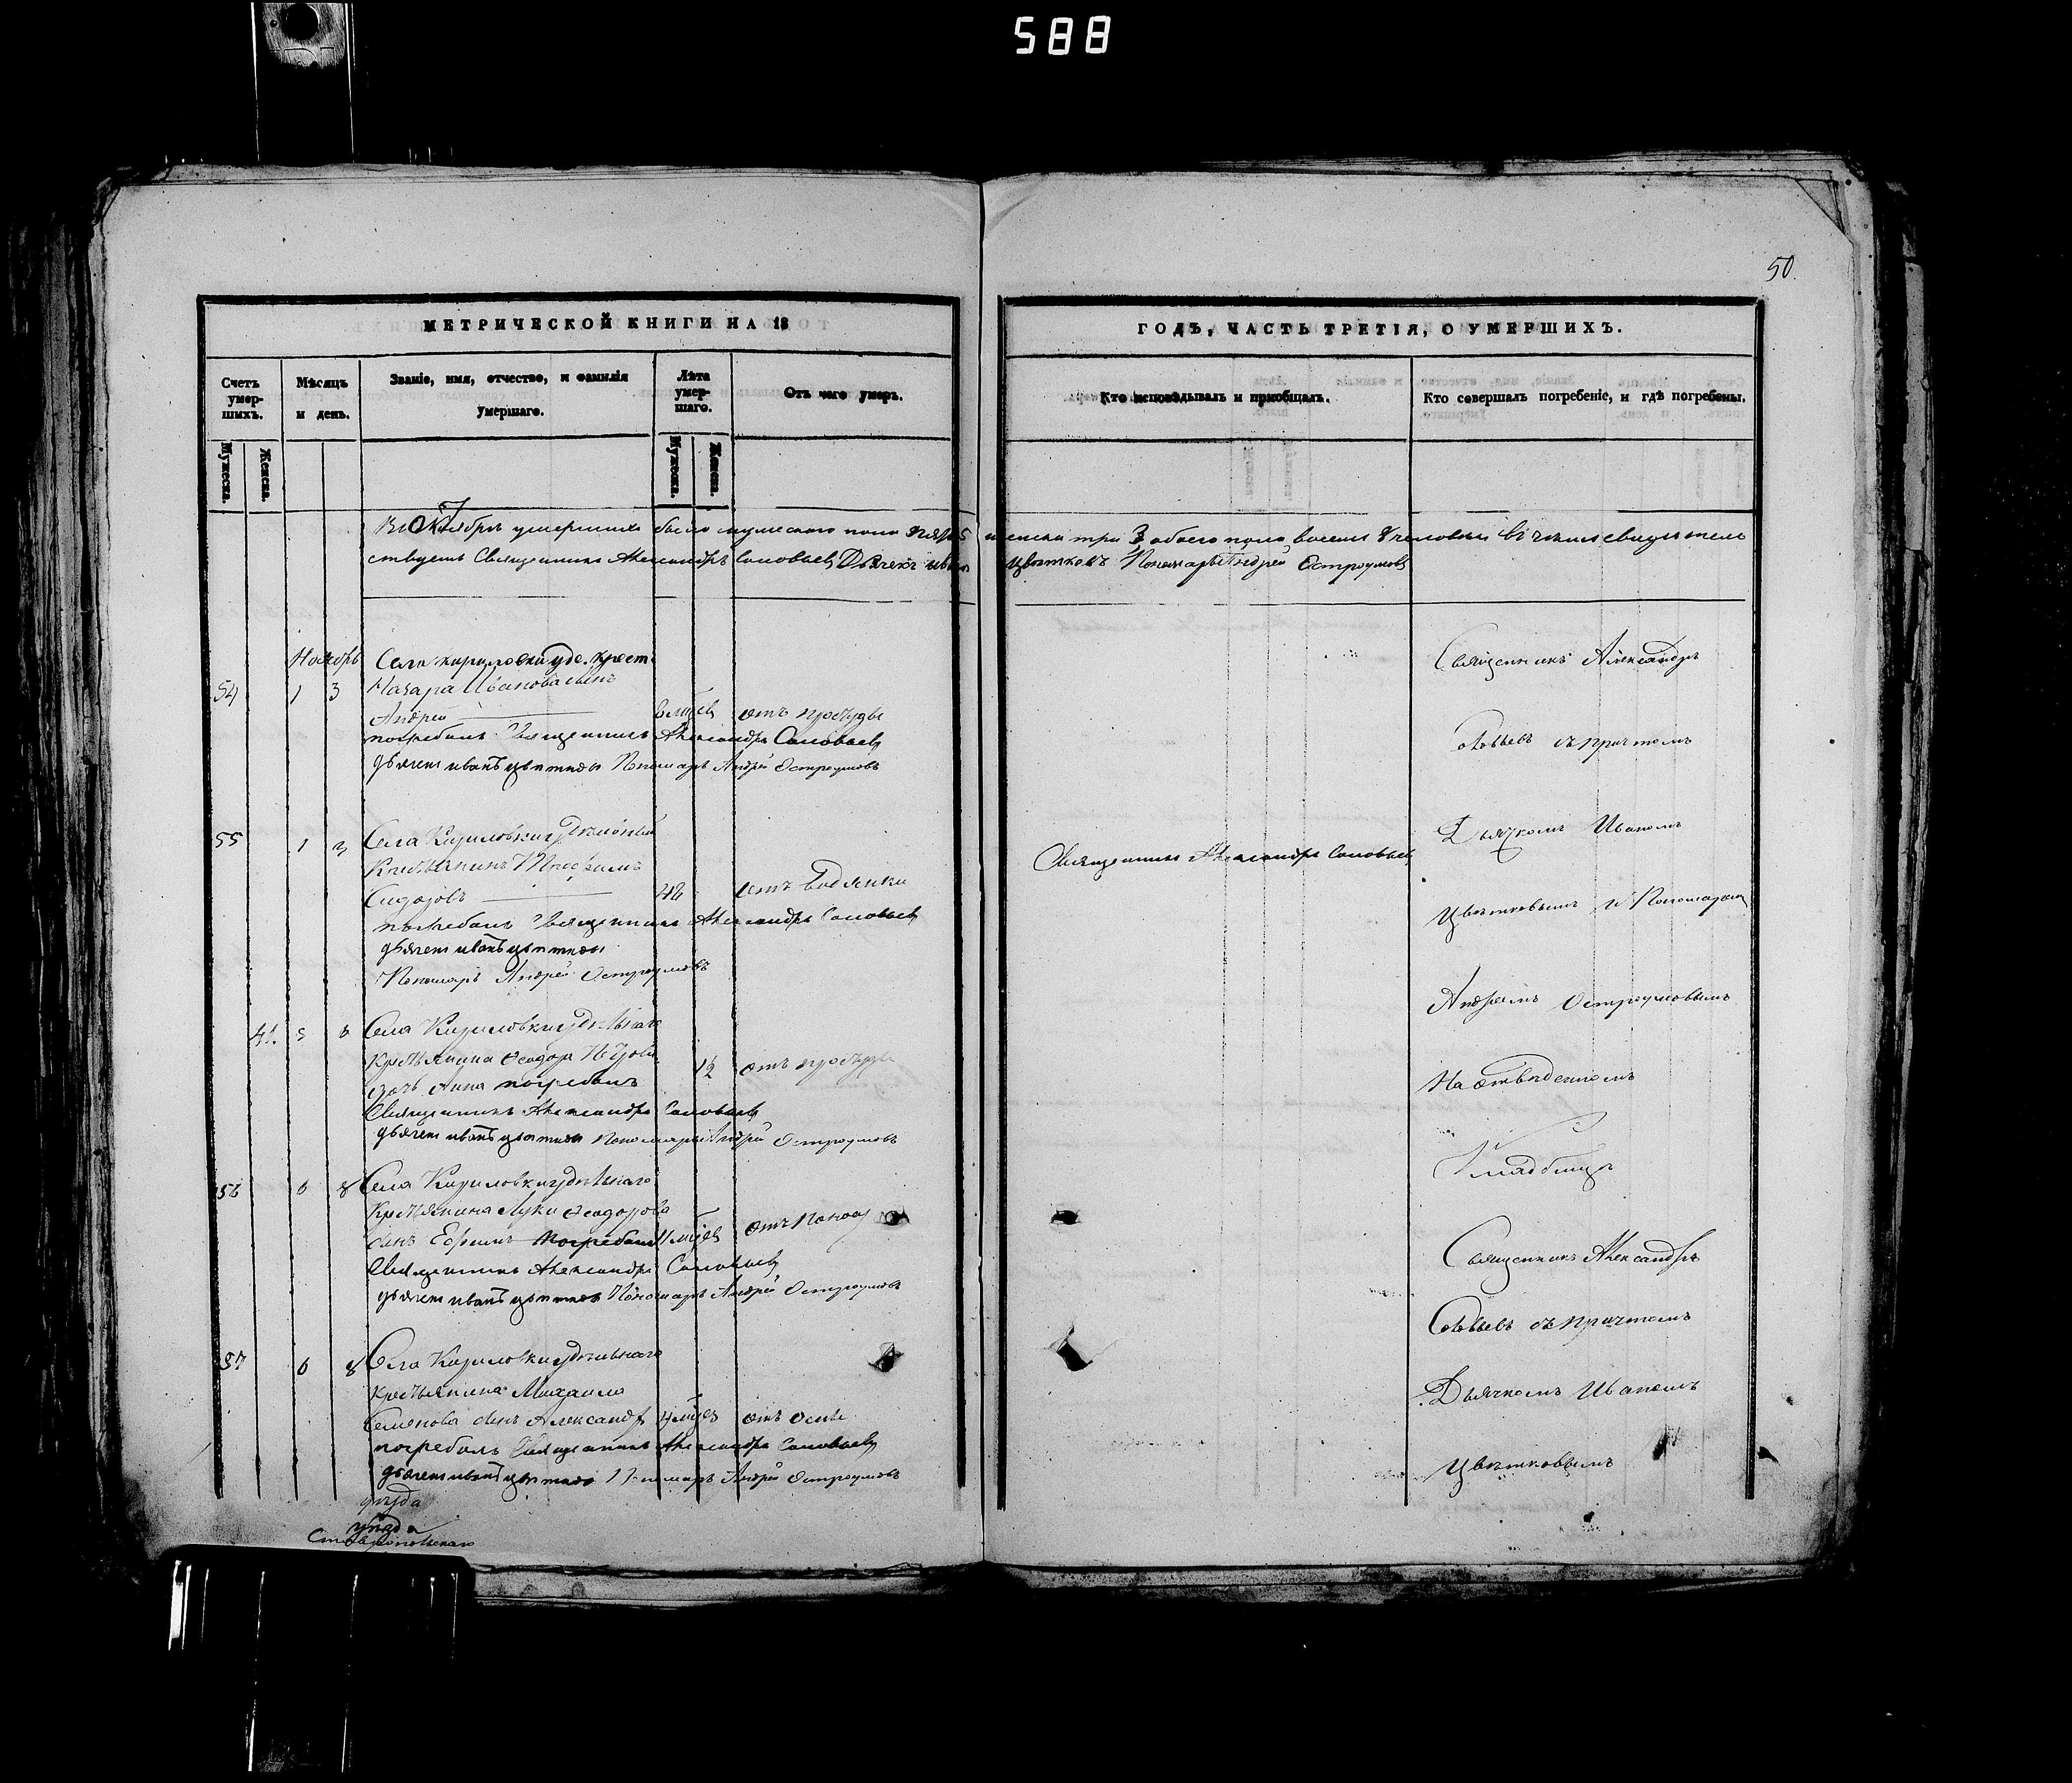 588
50.
МЕТРИЧЕСКОЙ КНИГИ НА 18
ГОДЪ, ЧАСТЬ ТРЕТІЯ, О УМЕРШИХЪ.
Счетъ умершихъ.
Мѣсяцъ и день.
Званіе, имя, отчество, и фамилія умершаго.
Лѣта умершаго.
Отъ чего умеръ.
Кто исповѣдывалъ и пріобщалъ.
Кто совершалъ погребеніе, и гдѣ погребены.
Мужеска.
Женска.
Мужеска.
Женска.
Въ Октябрѣ умершихъ было мужескаго пола пять 5 женска три 3 обоего пола восемь 8 человекъ въ чемъ свидѣтель
ствуемъ Священникъ Александръ Соловьевъ Дьячекъ Иванъ Цвѣтковъ Пономарь Андрей Остроумовъ
Ноябрь
Села Кириловки уде. крест.
54 1 3 Назара Иванова сынъ
Андрей отъ простуды
погребалъ Священникъ Александръ Соловьевъ
дьячекъ иванъ цвѣтковъ Пономарь Андрей Остроумовъ
55 1 3 Села Кириловки удѣльный
Крестьянинъ
Сидоровъ 42 отъ водянки
погребалъ Священникъ Александръ Соловьевъ
дьячекъ иванъ цвѣтковъ
Пономарь Андрей Остроумовъ
41. Села Кириловки удѣльнаго
крестьянина Феодора Петрова
дочь Анна погребалъ 12 отъ простуды
Священникъ Александръ Соловьевъ
дьячекъ иванъ цвѣтковъ Пономарь Андрей Остроумовъ
56 6 8 Села Кириловки удѣльнаго
крестьянина Луки Феодорова
сынъ Ефимъ погребалъ отъ поноса
Священникъ Александръ Соловьевъ
дьячекъ иванъ цвѣтковъ Пономарь Андрей Остроумовъ
57 6 8 Села Кириловки удѣльнаго
крестьянина Михаила
Семенова сынъ Александръ отъ оспы
погребалъ Священникъ Александръ Соловьевъ
дьячекъ иванъ цвѣтковъ Пономарь Андрей Остроумовъ
уѣзда
Ставропольскаго
Священникъ Александръ Соловьевъ
Священникъ Александръ
Соловьевъ съ причтомъ
Дьячкомъ Иваномъ
Цвѣтковымъ и Пономаремъ
Андреемъ Остроумовымъ
На отведенномъ
Кладбищѣ
Священникъ Александръ
Соловьевъ съ причтомъ
Дьячкомъ Иваномъ
Цвѣтковымъ